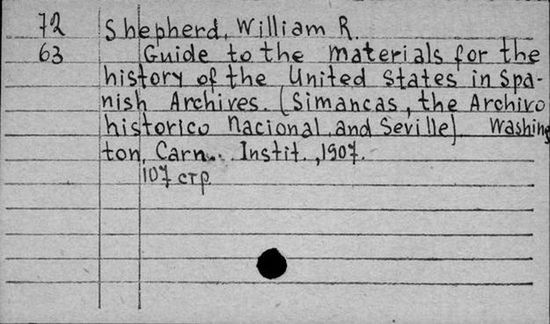 72 Shepherd, William R.
63 Guide to the materials for the
history of the United States in Spa-
nish Archives. (Simancas, the Archivo
historico Nacional, and Seville). Washing
ton, Carn... Instit., 1907.
107 стр.